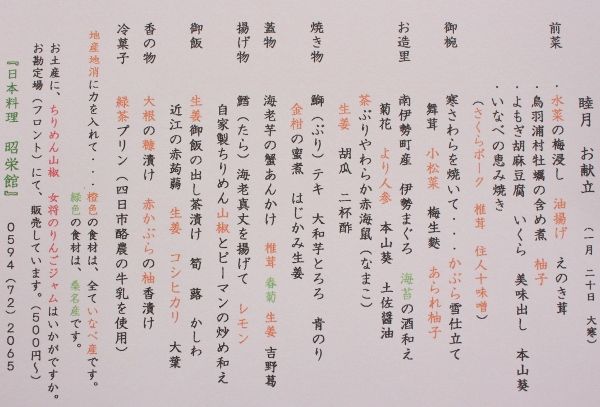 睦月　お献立（一月　二十日　大寒）
前菜　・水菜の梅浸し　油揚げ　えのき茸
・鳥羽浦村牡蠣の含め煮　柚子
・よもぎ胡麻豆腐　いくら　美味出し　本山葵
・いなべの恵み焼き
（さくらポーク　椎茸　住人十味噌）
御椀　寒さわらを焼いて・・・かぶら雪仕立て
舞茸　小松菜　梅生麩　あられ柚子
お造里　南伊勢町産　伊勢まぐろ　海苔の酒和え
菊花　より人参　本山葵　土佐醤油
茶ぶりやわらか赤海鼠（なまこ）
生姜　胡瓜　二杯酢
焼き物　鰤（ぶり）テキ　大和芋とろろ　青のり
金柑の蜜煮　はじかみ生姜
蓋物　海老芋の蟹あんかけ　椎茸　春菊　生姜　吉野葛
揚げ物　鱈（たら）海老真丈を揚げて　レモン
自家製ちりめん山椒とピーマンの炒め和え
御飯　生姜御飯の出し茶漬け　筍　蕗　かしわ
近江の赤蒟蒻　生姜　コシヒカリ　大葉
香の物　大根の糠漬け　赤かぶらの柚香漬け
冷菓子　緑茶プリン（四日市酪農の牛乳を使用）
地産地消に力を入れて・・・橙色の食材は、全ていなべ産です。
緑色の食材は、桑名産です。
お土産に、ちりめん山椒　女将のりんごジャムはいかがですか。
お勘定場（フロント）にて、販売しています。（５００円〜）
『日本料理　昭栄館』　０５９４（７２）２０６５